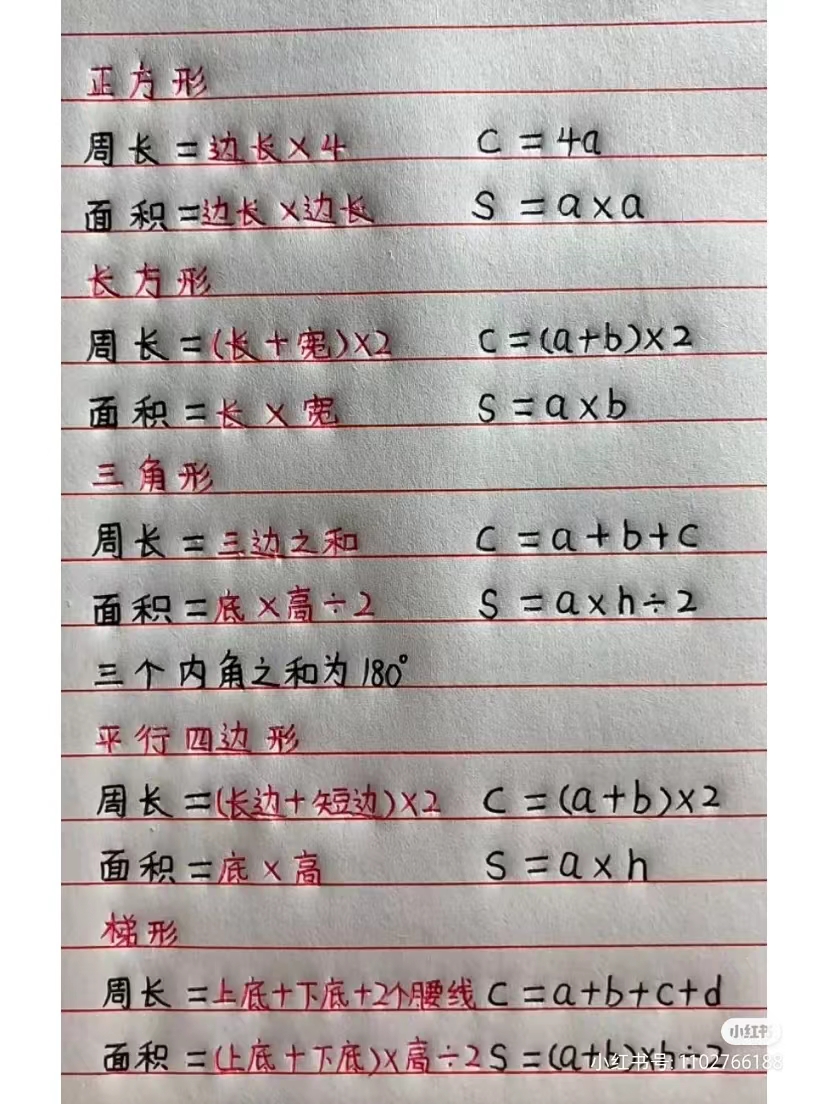 正方形
周长=边长×4 C=4a
面积=边长×边长 S=a×a
长方形
周长=(长+宽)×2 C=(a+b)×2
面积=长×宽 S=a×b
三角形
周长=三边之和 C=a+b+c
面积=底×高÷2 S=a×h÷2
三个内角之和为180°
平行四边形
周长=(长边+短边)×2 C=(a+b)×2
面积=底×高 S=a×h
梯形
周长=上底+下底+2个腰线 C=a+b+c+d
小红书
面积=(上底+下底)×高÷2 S=(a+b)×h÷2
小红书号:1102766188